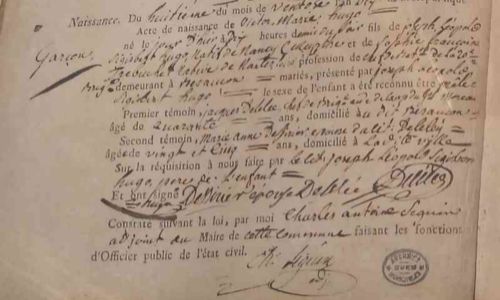 Naissance. Du huitième du mois de Ventose l'an Dix
Acte de naissance de Victor Marie Hugo
Garçon né le jour d'hier à Dix heures demie du soir fils de Joseph Léopold
Sigisbert Hugo natif de Nancy et de Sophie Françoise
Trebuchet native de Nantes profession de
Brig. demeurant à Besançon mariés, présenté par Joseph Léopold
Sigisbert Hugo le sexe de l'Enfant a été reconnu être mâle
Premier témoin, Jacques Delelée de Brigade aide de Moreau
âgé de quarante ans, domicilié à Besançon
Second témoin, Marie Anne Dessirier épouse du cit. Delelée
âgée de vingt et Cinq ans, domicilié à la dite ville
Sur la réquisition à nous faite par le cit. Joseph Léopold Sigisbert
Hugo, père de l'enfant
Et ont signé
Hugo Dessirier épouse Delelée Delelée
Constaté suivant la loi, par moi Charles Antoine Seguin
adjoint au Maire de cette commune faisant les fonctions
d'Officier public de l'état civil.
Ch. Seguin
adj.